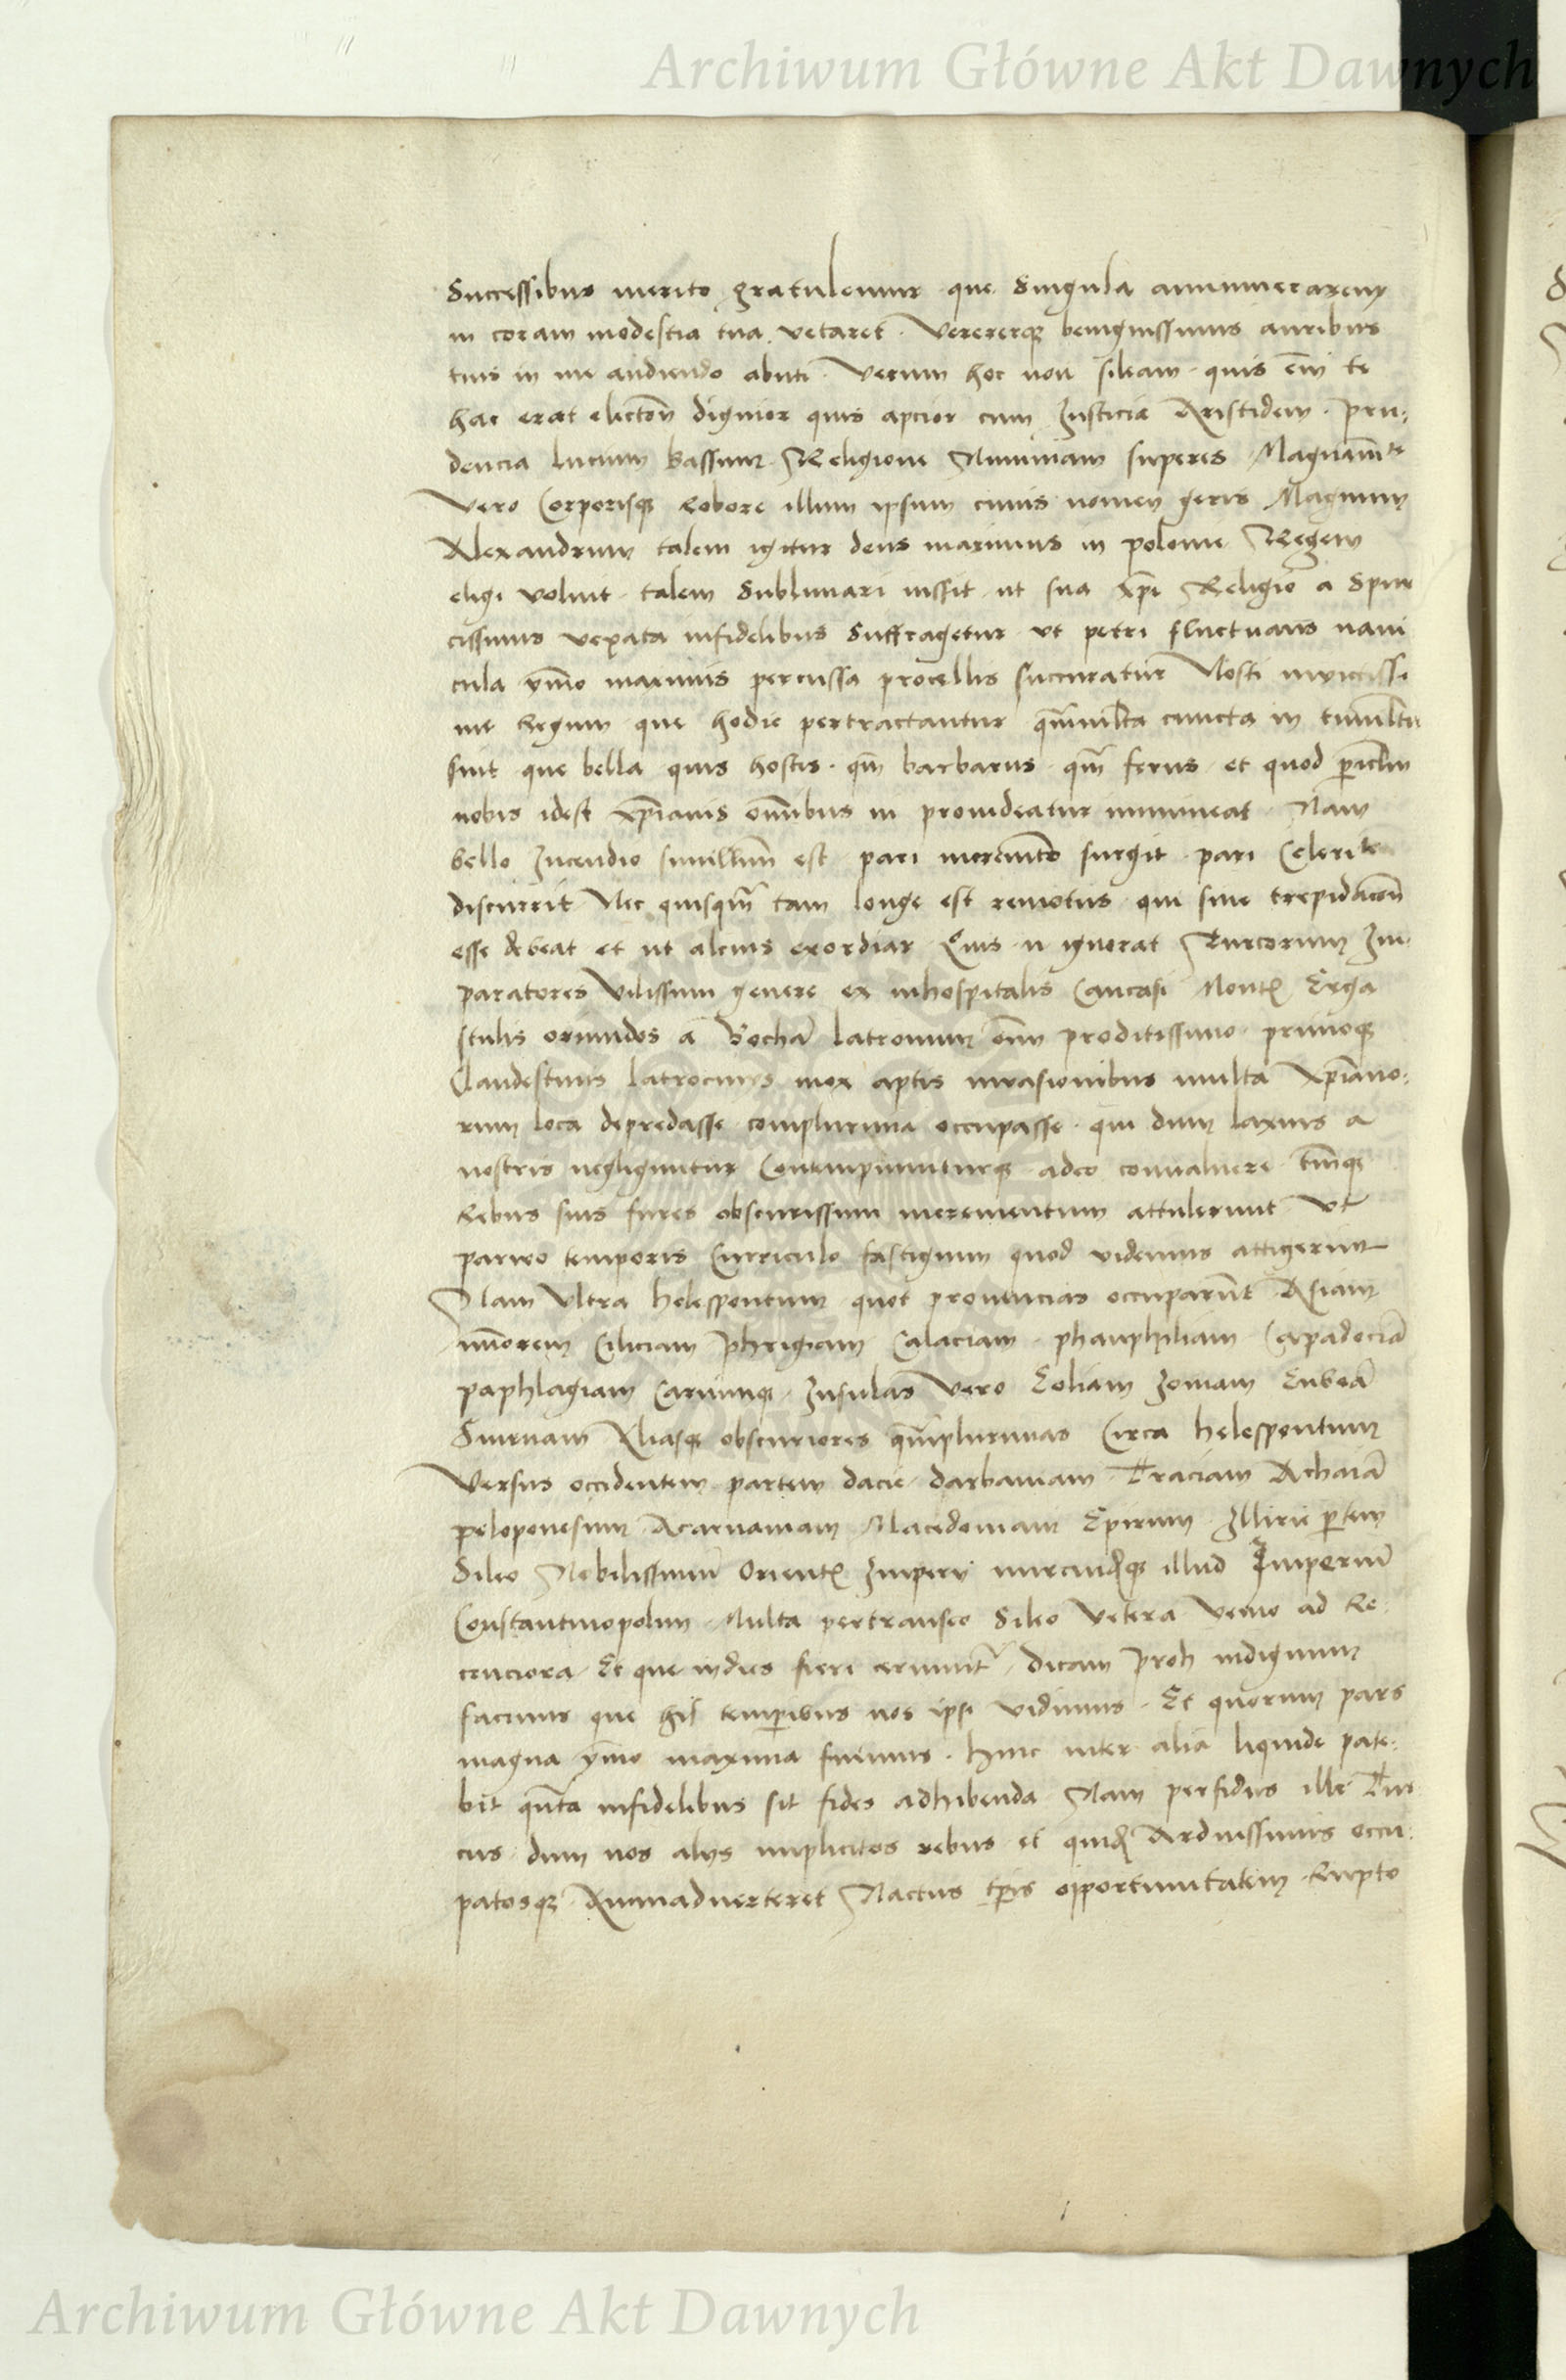 Archiwum Główne Akt Dawnych
Successibus merito gratulemur que Singula annumerarem
ni coram modestia tua vetaret · Vererer&#xA76B; benignissimis auribus
tuis in me audiendo abuti · Verum hoc non sileam · quis em̄ te
hac erat electōn dignior quis apcior cum Justicia Aristidem · Pru-
dencia lucium bassum · Religione Numam superes · Magnanimte
Vero Corporisqꝫ Robore illum ipsum cuius nomen geris Magnum
Alexandrum talem igitur deus maximus in polonie Regem
eligi voluit · talem Sublimari iussit · ut sua xp̄i Religio a Spur
cissimis vexata infidelibus Suffragetur · Vt petri fluctuans navi
cula ȳmo maximis percussa procellis succuratur Nosti invictissi
me Regum que hodie pertractantur qm̄ multa cuncta in tumultu
sint que bella quis hostis · qm̄ barbarus · qm̄ ferus · et quod pericl̄m
nobis idest xp̄ianis om̄ibus ni prouideatur immineat · Nam
bello Incendio simillimū est pari incremento surgit · pari Celerite
discurrit Nec quisqm̄ tam longe est remotus qui sine trepidacōn
esse debeat et ut alcius exordiar · Quis n ignorat Turcorum Im-
paratores Vilissimi genere ex inhospitalis Caucasi Montꝭ Erga
stulis oriundos a latronum om̄i proditissimo · primoqꝫ
Clandestinis latrociniis mox aptis invasionibus multa xp̄iano-
rum loca depredasse complurima occupasse · qui dum laxius a
nostris negliguntur Contempnunturqꝫ adeo convaluere tm̄qꝫ
Rebus suis fures obscurissimi incrementum attulerunt · Vt
parvo temporis Curriculo fastigium quod videmus attigerint
Nam Ultra helespontum quot prouincias occuparūt Asiam
minorem Ciliciam Phrigiam Galaciam · phamphiliam · Capadociā
paphlagiam Cariamqꝫ · Insulas Vero Eoliam Joniam Eubeā
Smirnam Aliasqꝫ obscuriores qm̄plurimas Circa helespontum
Versus occidentem partem dacie · dardaniam · Traciam Achaiā
peloponesum · Acarnaniam · Macedoniam Epirum · Illirie ptem
Sileo Nobilissimū Orientꝭ Imperii illud Imperiū
Constantinopolim · Multa pertranseo Sileo Vetera Venio ad Re-
cenciora · Et que indies fieri cernunt̄ · dicam Proh indignum
facinus que his temporibus nos ipsi vidimus · Et quorum pars
magna ȳmo maxima fuimus · hinc inter alia liquide pate-
bit qūta infidelibus sit fides adhibenda Nam perfidus ille Tur
cus dum nos aliis implicitos rebus et quidē Arduissimis occu-
patosqꝫ Animadverteret Nactus tp̄is opportunitatem · Rupto
Archiwum Główne Akt Dawnych